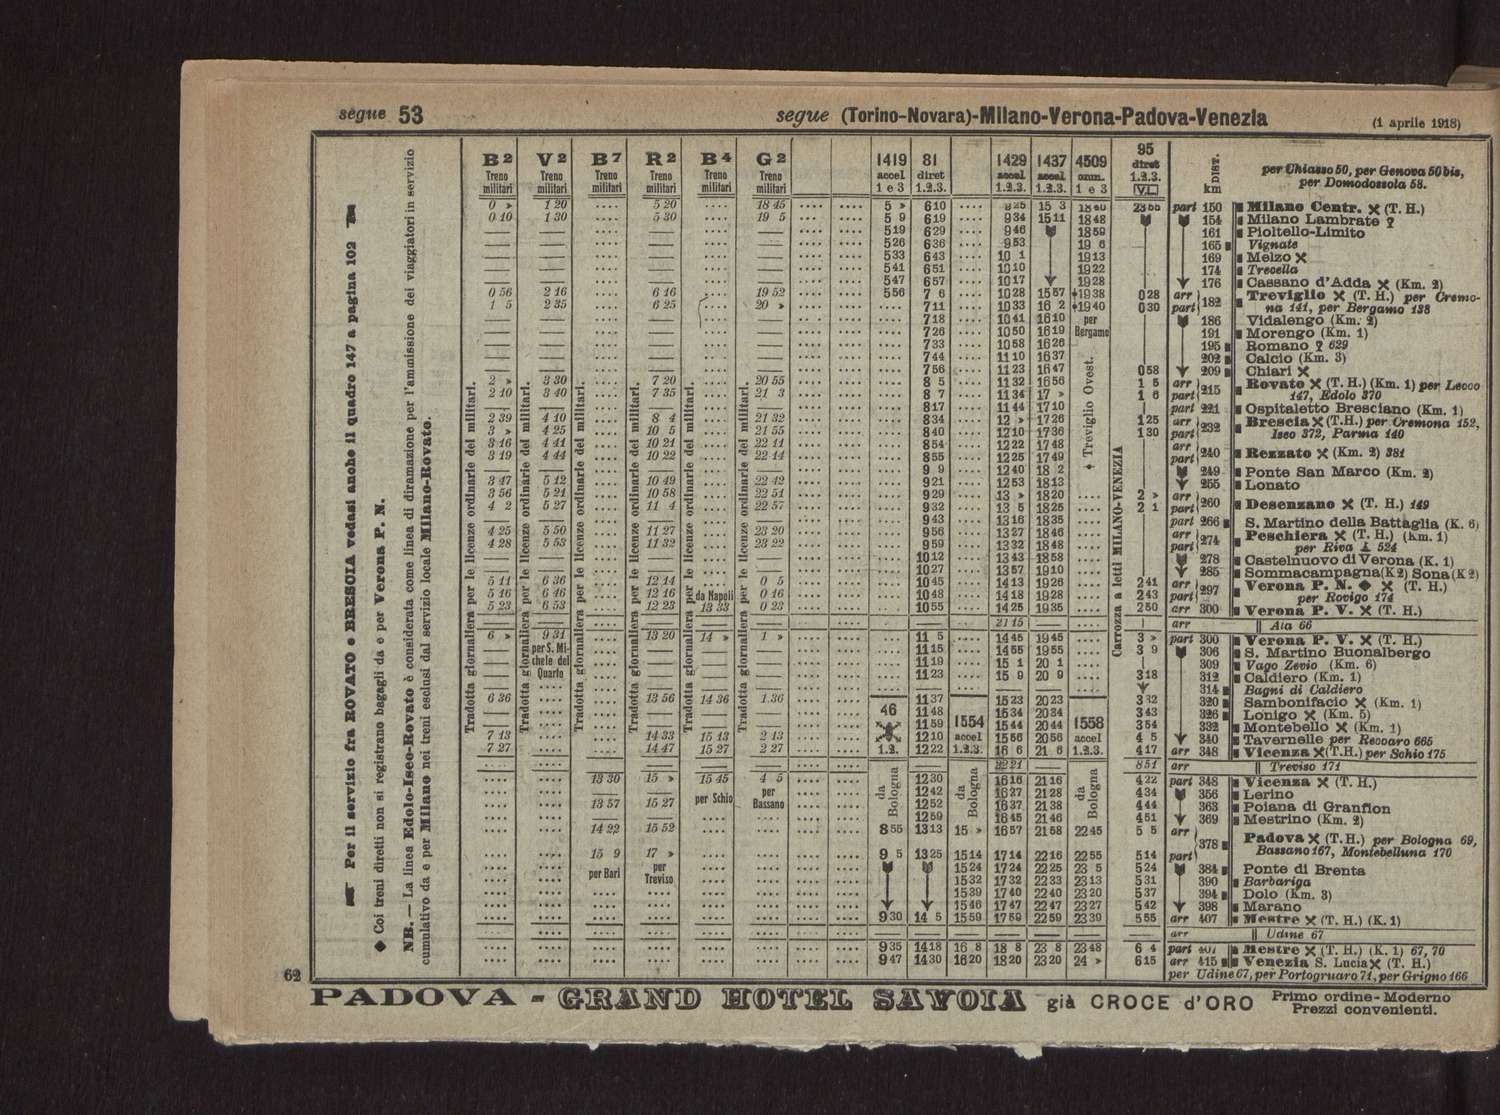 segue 53
segue (Torino-Novara)-Milano-Verona-Padova-Venezia
(1 aprile 1918)
☛ Per il servizio fra ROVATO e BRESCIA vedasi anche il quadro 147 a pagina 102 ☚
◆ Coi treni diretti non si registrano bagagli da e per Verona P. N.
NB. — La linea Edolo-Iseo-Rovato è considerata come linea di diramazione per l'ammissione dei viaggiatori in servizio
cumulativo da e per Milano nei treni esclusi dal servizio locale Milano-Rovato.
B2 V2 B7 R2 B4 G2 1419 81 1429 1437 4509 95
Treno Treno Treno Treno Treno Treno accel diret accel accel omn. diret
militari militari militari militari militari militari 1 e 3 1.2.3. 1.2.3. 1.2.3. 1 e 3 1.2.3.
V.L.
DIST. km
per Chiasso 50, per Genova 50 bis,
per Domodossola 58.
Tradotta giornaliera per le licenze ordinarie dei militari.
Tradotta giornaliera per le licenze ordinarie dei militari.
Tradotta giornaliera per le licenze ordinarie dei militari.
Tradotta giornaliera per le licenze ordinarie dei militari.
Tradotta giornaliera per le licenze ordinarie dei militari.
Tradotta giornaliera per le licenze ordinarie dei militari.
Carrozza a letti MILANO-VENEZIA
0 » 1 20 5 20 18 45 5 » 6 10 15 3 part 150 Milano Centr. (T. H.)
0 10 1 30 5 30 19 5 5 9 6 19 9 34 15 11 18 48 154 Milano Lambrate
5 19 6 29 9 46 18 59 161 Pioltello-Limito
5 26 6 36 9 53 19 6 165 Vignate
5 33 6 43 10 1 19 13 169 Melzo
5 41 6 51 10 10 19 22 174 Trecella
5 47 6 57 10 17 19 28 176 Cassano d'Adda (Km. 2)
0 56 2 16 6 16 19 52 5 56 7 6 10 28 15 57 ◆19 38 0 28 arr Treviglio (T. H.) per Cremo-
1 5 2 35 6 25 20 » 7 11 10 33 16 2 ◆19 40 0 30 part 182 na 141, per Bergamo 138
7 18 10 41 16 10 per 186 Vidalengo (Km. 2)
7 26 10 50 16 19 Bergamo 191 Morengo (Km. 1)
7 33 10 58 16 26 195 Romano 629
7 44 11 10 16 37 202 Calcio (Km. 3)
7 56 11 23 16 47 0 58 209 Chiari
2 » 3 30 7 20 20 55 8 5 11 32 16 56 1 5 arr Rovato (T. H.) (Km. 1) per Lecco
2 10 3 40 7 35 21 3 8 7 11 34 17 » 1 6 part 215 147, Edolo 370
8 17 11 44 17 10 part 221 Ospitaletto Bresciano (Km. 1)
2 39 4 10 8 4 21 32 8 34 12 » 17 26 1 25 arr Brescia (T.H.) per Cremona 152,
3 » 4 25 10 5 21 55 8 40 12 10 17 36 1 30 part 232 Iseo 372, Parma 140
3 16 4 41 10 21 22 11 8 54 12 22 17 48 arr
3 19 4 44 10 22 22 14 8 55 12 25 17 49 part 240 Rezzato (Km. 2) 381
9 9 12 40 18 2 249 Ponte San Marco (Km. 2)
3 47 5 12 10 49 22 42 9 21 12 53 18 13 255 Lonato
3 56 5 21 10 58 22 51 9 29 13 » 18 20 2 » arr
4 2 5 27 11 4 22 57 9 32 13 5 18 25 2 1 part 260 Desenzano (T. H.) 149
9 43 13 16 18 35 part 266 S. Martino della Battaglia (K. 6)
4 25 5 50 11 27 23 20 9 56 13 27 18 46 arr Peschiera (T. H.) (Km. 1)
4 28 5 53 11 32 23 22 9 59 13 32 18 48 part 274 per Riva 524
10 12 13 43 18 58 278 Castelnuovo di Verona (K. 1)
10 27 13 57 19 10 285 Sommacampagna (K 2) Sona (K 2)
5 11 6 36 12 14 0 5 10 45 14 13 19 26 2 41 arr Verona P. N. ◆ (T. H.)
5 16 6 46 12 16 da Napoli 0 16 10 48 14 18 19 28 2 43 part 297 per Rovigo 174
5 23 6 53 12 23 13 33 0 23 10 55 14 25 19 35 2 50 arr 300 Verona P. V. (T. H.)
21 15 arr Ala 66
6 » 9 31 13 20 14 » 1 » 11 5 14 45 19 45 3 » part 300 Verona P. V. (T. H.)
per S. Mi- 11 15 14 55 19 55 3 9 306 S. Martino Buonalbergo
chele del 11 19 15 1 20 1 309 Vago Zevio (Km. 6)
Quarto 11 23 15 9 20 9 3 18 312 Caldiero (Km. 1)
314 Bagni di Caldiero
6 36 13 56 14 36 1.36 11 37 15 23 20 23 3 32 320 Sambonifacio (Km. 1)
46 11 48 15 34 20 34 3 43 326 Lonigo (K. 5)
11 59 1554 15 44 20 44 1558 3 54 332 Montebello (Km. 1)
7 13 14 33 15 13 2 13 12 10 accel 15 56 20 56 accel 4 5 340 Tavernelle per Recoaro 665
7 27 14 47 15 27 2 27 1.2. 12 22 1.2.3. 16 6 21 6 1.2.3. 4 17 arr 348 Vicenza (T.H.) per Schio 175
22 21 8 51 arr Treviso 171
13 30 15 » 15 45 4 5 da Bologna 12 30 da Bologna 16 16 21 16 da Bologna 4 22 part 348 Vicenza (T. H.)
per 12 42 16 27 21 28 4 34 356 Lerino
13 57 15 27 per Schio Bassano 12 52 16 37 21 38 4 44 363 Poiana di Granfion
12 59 16 45 21 46 4 51 369 Mestrino (Km. 2)
14 22 15 52 8 55 13 13 15 » 16 57 21 58 22 45 5 5 arr Padova (T. H.) per Bologna 69,
15 9 17 » 9 5 13 25 15 14 17 14 22 16 22 55 5 14 part 378 Bassano 167, Montebelluna 170
per Bari per 15 24 17 24 22 25 23 5 5 24 384 Ponte di Brenta
Treviso 15 32 17 32 22 33 23 13 5 31 390 Barbariga
15 39 17 40 22 40 23 20 5 37 394 Dolo (Km. 3)
15 46 17 47 22 47 23 27 5 42 398 Marano
9 30 14 5 15 59 17 59 22 59 23 39 5 55 arr 407 Mestre (T. H.) (K. 1)
arr Udine 67
9 35 14 18 16 8 18 8 23 8 23 48 6 4 part 407 Mestre (T. H.) (K. 1) 67, 70
9 47 14 30 16 20 18 20 23 20 24 » 6 15 arr 415 Venezia S. Lucia (T. H.)
per Udine 67, per Portogruaro 71, per Grigno 166
◆ Treviglio Ovest.
62
PADOVA - GRAND HOTEL SAVOIA già CROCE d'ORO Primo ordine - Moderno
Prezzi convenienti.